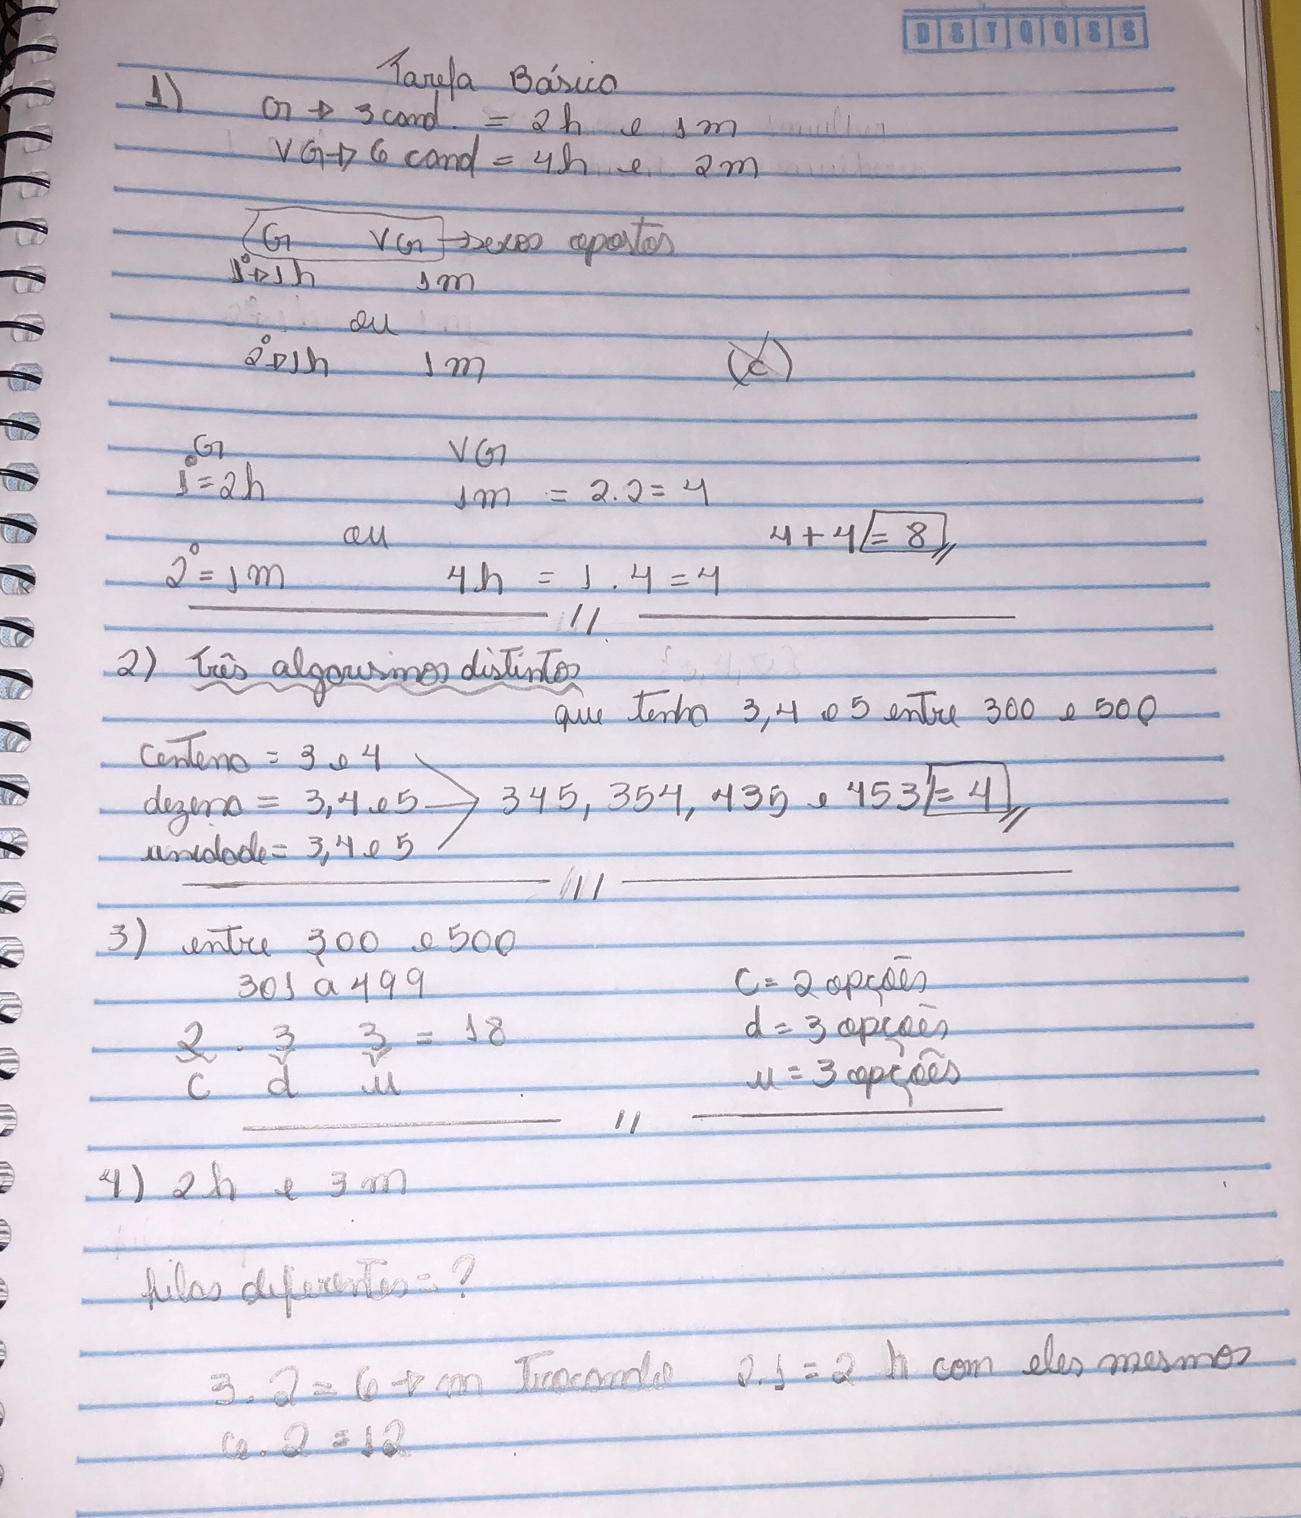 D S T Q Q S S
Tarefa Básica
1) G → 3 cand. = 2h e 1m
VG → 6 cand = 4h e 2m
G VG → sexos opostos
1º → 1h 1m
ou
2º → 1h 1m (c)
G VG
1º = 2h 1m = 2.2 = 4
ou 4 + 4 = 8
2º = 1m 4h = 1.4 = 4
//
2) três algarismos distintos
que tenha 3,4 e 5 entre 300 e 500
centena = 3 e 4
dezena = 3,4 e 5 → 345, 354, 435, e 453 = 4
unidade = 3,4 e 5
//
3) entre 300 e 500
301 à 499 C = 2 opções
2 . 3 3 = 18 d = 3 opções
C d u u = 3 opções
//
4) 2h e 3m
filas diferentes = ?
3.2 = 6 → m Trocando 2.1 = 2 h com eles mesmos
6.2 = 12